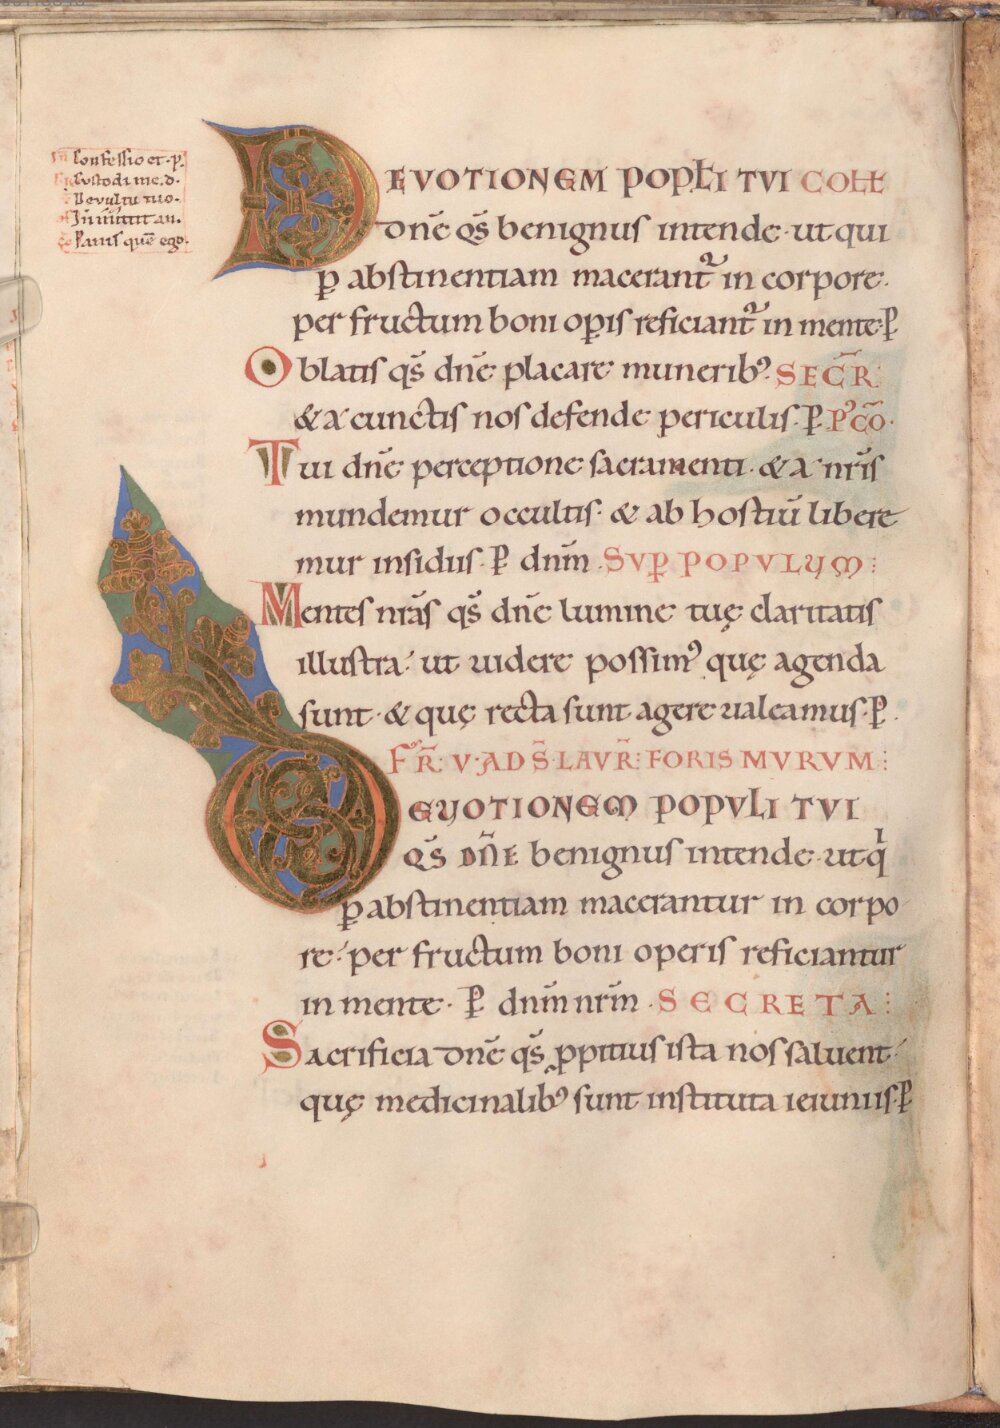 In Confessio et p.
Gr Custodi me. d.
De uultu tuo.
Of Inmittit an.
Co Panis quē ego.
DEVOTIONEM POPŁI TVI COLŁ
dn̄e q̄s benignus intende· ut qui
ꝑ abstinentiam macerant᷑ in corpore·
per fructum boni oꝑis reficiant᷑ in mente· ꝑ
Oblatis q̄s dn̄e placare munerib᷒· SECR̄
& a cunctis nos defende periculis· ꝑ P᷒CŌ·
Tui dn̄e perceptione sacramenti· & a nr̄is
mundemur occultis· & ab hostiū libere
mur insidiis· ꝑ dnm̄ SVꝐ POPVLVM:
Mentes nr̄as q̄s dn̄e lumine tuę claritatis
illustra· ut uidere possim᷒ quę agenda
sunt· & quę recta sunt agere ualeamus· ꝑ.
FR̄· V· AD S̄· LAVR̄: FORIS MVRVM:
DEVOTIONEM POPVLI TVI
Q̄S DN̄E benignus intende· ut qͥ
ꝑ abstinentiam macerantur in corpo
re· per fructum boni operis reficiantur
in mente· ꝑ dnm̄ nrm̄· SECRETA:
Sacrificia dn̄e q̄s ꝓpitius ista nos saluent·
quę medicinalib᷒ sunt instituta ieiuniis· ꝑ